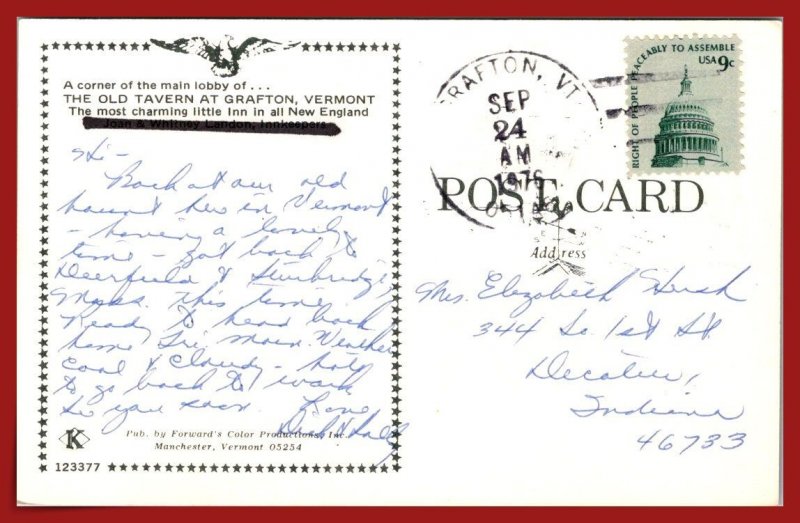 A corner of the main lobby of . . .
THE OLD TAVERN AT GRAFTON, VERMONT
The most charming little Inn in all New England
Joan & Whitney Landon, Innkeepers
Hi -
Back at our old
haunt here in Vermont
- having a lovely
time - got back to
Deerfield & Sturbridge,
Mass. this time.
Ready to head back
home Fri. morn. Weather
cool & cloudy - hate
to go back to work
See you soon. Love
Dick & Sally
Pub. by Forward's Color Productions, Inc.
Manchester, Vermont 05254
K
123377
GRAFTON, VT
SEP
24
AM
1976
RIGHT OF PEOPLE PEACEABLY TO ASSEMBLE
USA 9c
POST CARD
Address
Mrs. Elizabeth Hersh
344 So. 1st St.
Decatur,
Indiana
46733